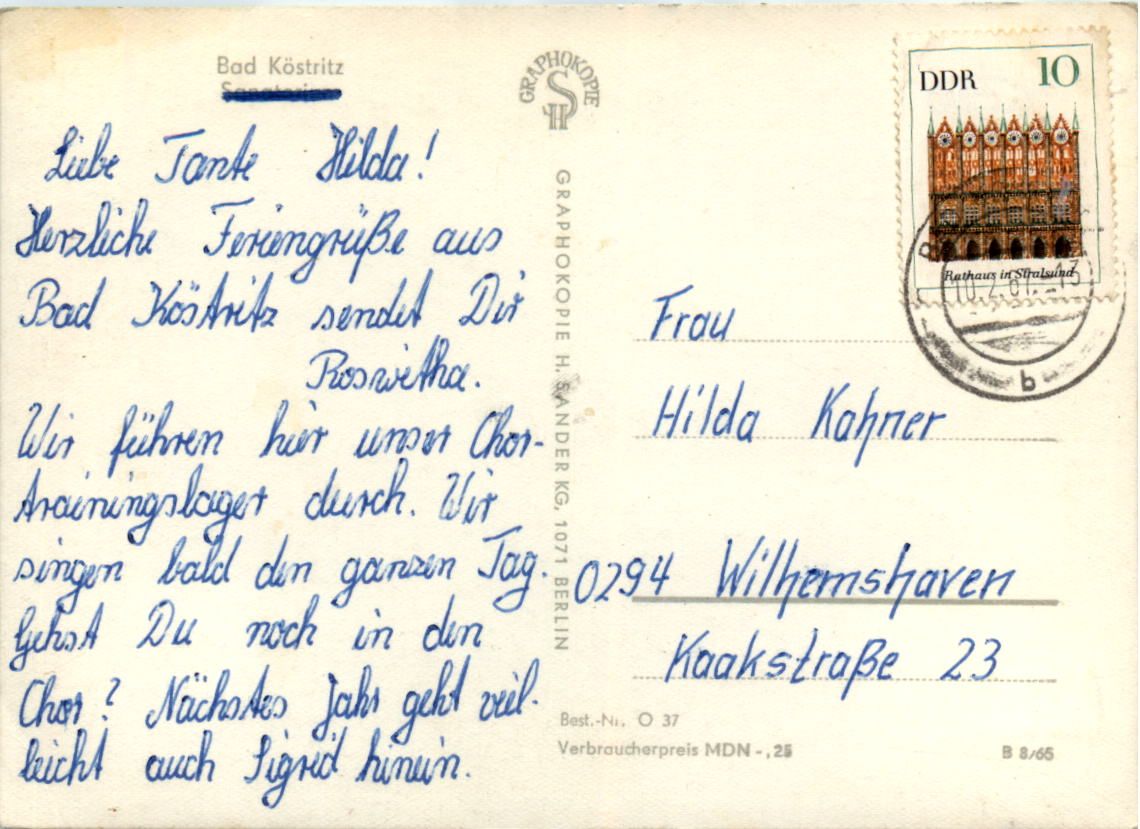 Bad Köstritz
GRAPHOKOPIE
H S
Liebe Tante Hilda!
Herzliche Feriengrüße aus
Bad Köstritz sendet Dir
Roswitha.
Wir führen hier unser Chor-
trainingslager durch. Wir
singen bald den ganzen Tag.
Gehst Du noch in den
Chor? Nächstes Jahr geht viel-
leicht auch Sigrid hinein.
GRAPHOKOPIE H. SANDER KG, 1071 BERLIN
DDR 10
Rathaus in Stralsund
b
Frau
Hilda Kahner
0294 Wilhemshaven
Kaakstraße 23
Best.-Nr. O 37
Verbraucherpreis MDN -,25
B 8/65